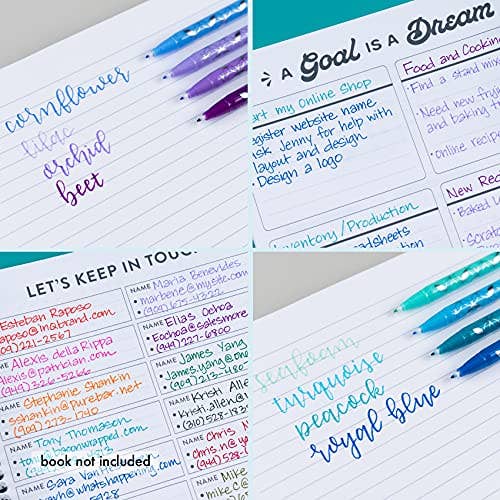 cornflower
lilac
orchid
beet
A Goal IS A Dream
art my Online Shop
egister website name
sk Jenny for help with
layout and design
• Design a logo
Food and Cooking
• Find a stand mix
• Need new fryi
and baking
• Online recip
Inventory/Production
eadsheets
New Rec
• Baked
• Scratc
LET'S KEEP IN TOUC
Esteban Raposo
aposo@inqbrand.com
(909) 221-2567
Alexis della Rippa
Alexis@patrician.com
(949) 326-5266
NAME Stephanie Shankin
• sshankin@purebar.net
• (909) 273-1740
NAME Tony Thomasen
wrapped.com
NAME Sara Van
@whatshappening.com
NAME Maria Benevides
• marbene@mysite.com
• (909) 675-4322
NAME Elias Ochoa
• Eochoa@salesmore
• (949) 227-6800
NAME James Yang
• james.yang@one
NAME Kristi Allen
• kristi.allen@
• (310) 528-183
NAME Chris N
• chris.n@y
• (949) 528-
NAME Mike
• mike.c@
book not included
seafoam
turquoise
peacock
royal blue